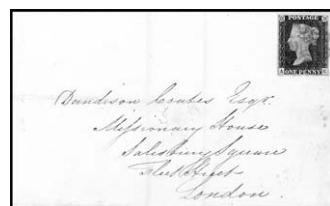 POSTAGE
A ONE PENNY
Dandison Coates Esqr.
Missionary House
Salisbury Square
Fleet Street
London.